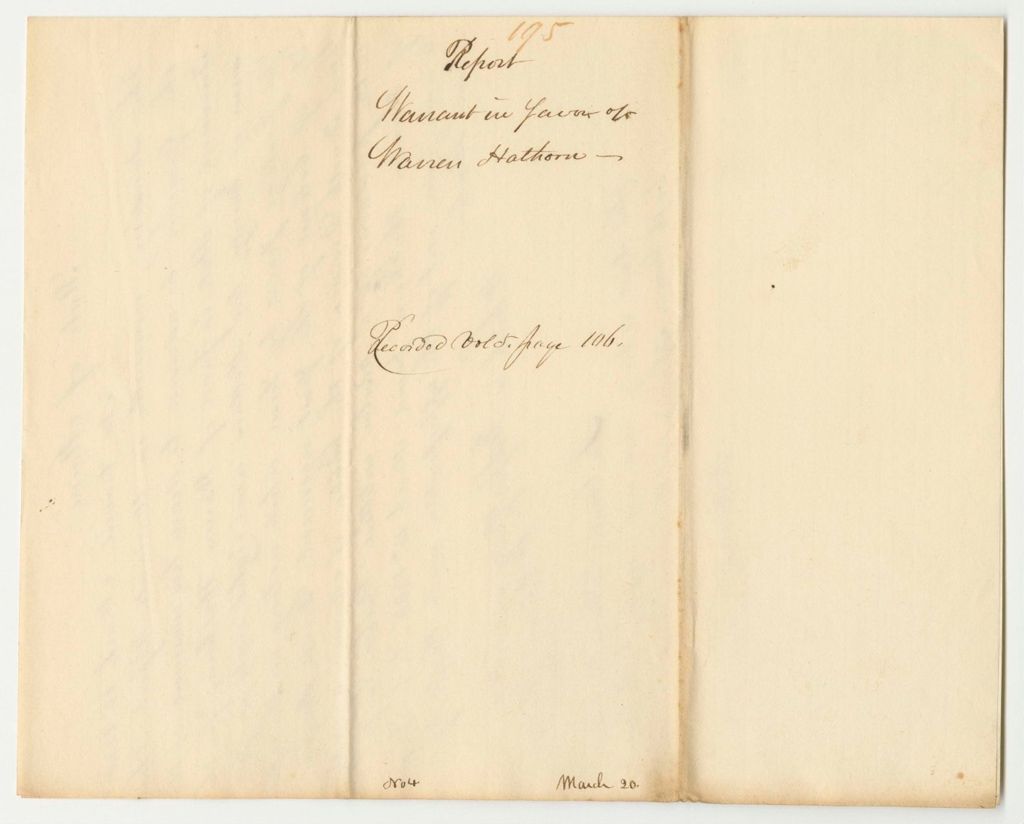 195
Report
Warrant in favor of
Warren Hathorn —
Recorded Vol 5. page 106.
No 4
March 20.